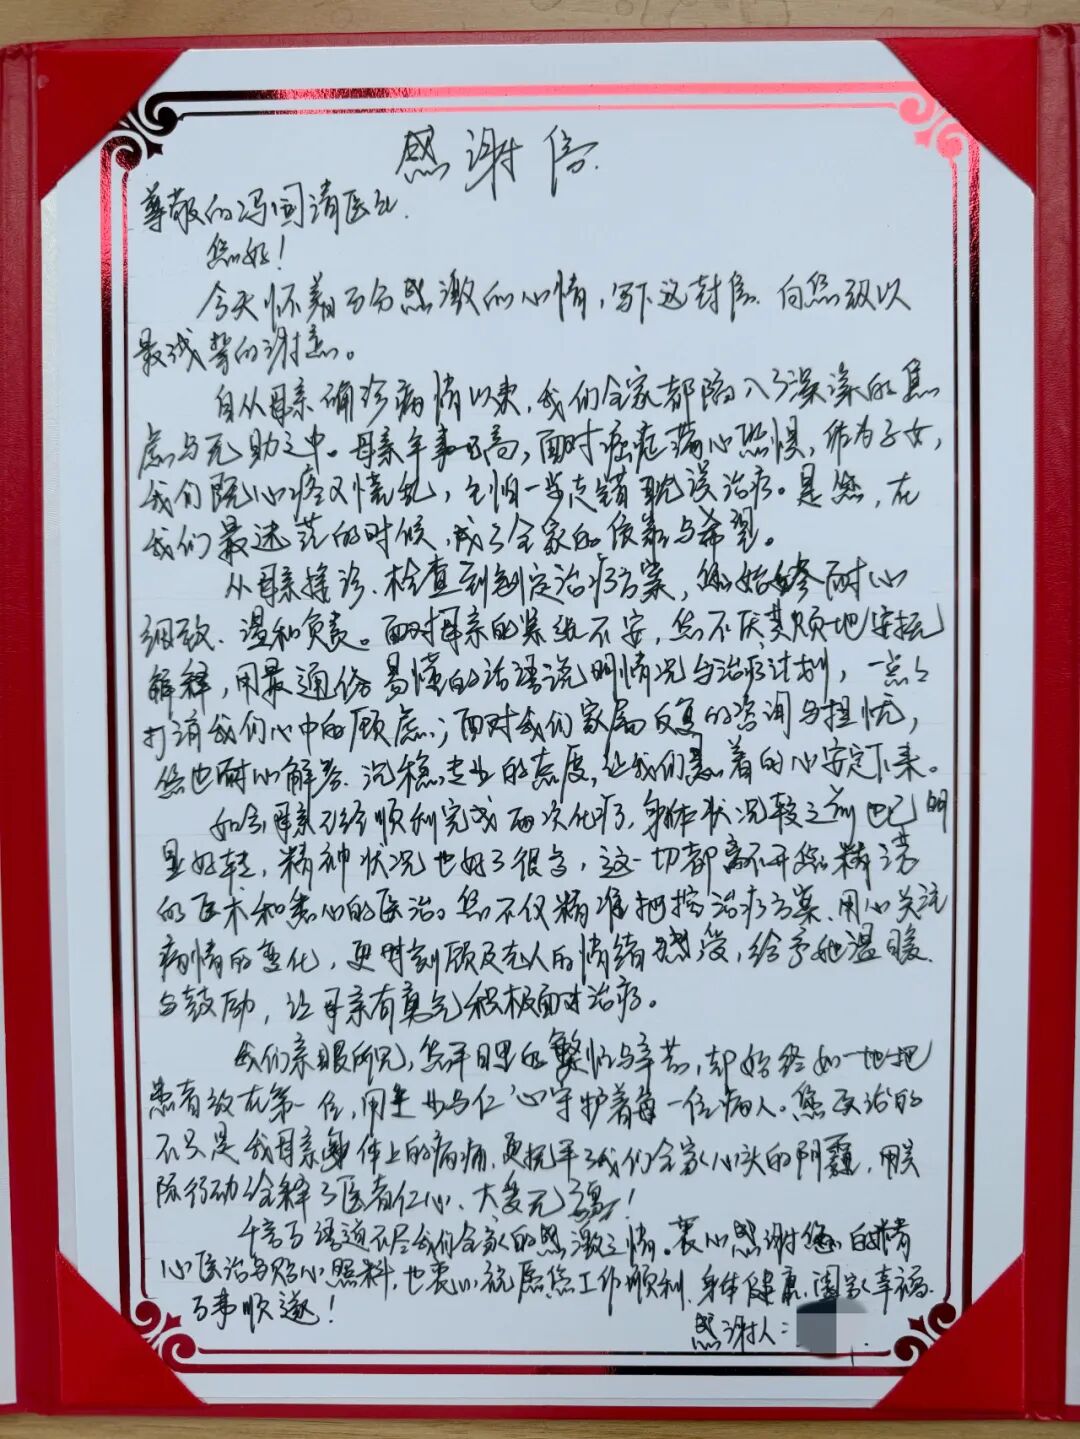 感谢信
尊敬的冯国清医生.
您好！
今天怀着万分感激的心情，写下这封信.向您致以
最诚挚的谢意。
自从母亲确诊病情以来，我们全家都陷入了深深的焦
虑与无助之中。母亲年事已高，面对癌症满心恐惧，作为子女，
我们既心疼又慌乱，生怕一步走错耽误治疗。是您，在
我们最迷茫的时候，成了全家的依靠与希望。
从母亲接诊、检查到制定治疗方案，您始终耐心
细致、温和负责。面对母亲的紧张不安，您不厌其烦地安抚
解释，用最通俗易懂的话语说明情况与治疗计划，一点点
打消我们心中的顾虑；面对我们家属反复的咨询与担忧，
您也耐心解答、沉稳专业的态度，让我们悬着的心安定下来。
如今母亲已经顺利完成两次化疗，身体状况较之前也已明
显好转，精神状况也好了很多，这一切都离不开您精湛
的医术和悉心的医治。您不仅精准把控治疗方案、用心关注
病情的变化，更时刻顾及老人的情绪感受，给予她温暖
与鼓励，让母亲有勇气积极面对治疗。
我们亲眼所见，您平日里的繁忙与辛苦，却始终如一地把
患者放在第一位，用专业与仁心守护着每一位病人。您医治的
不只是我母亲身体上的病痛，更抚平了我们全家心头的阴霾，用实
际行动诠释了医者仁心、大爱无疆！
千言万语道不尽我们全家的感激之情。衷心感谢您的精
心医治与贴心照料，也衷心祝愿您工作顺利、身体健康、阖家幸福、
万事顺遂！
感谢人：